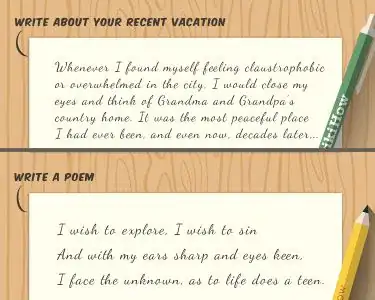 WRITE ABOUT YOUR RECENT VACATION
Whenever I found myself feeling claustrophobic
or overwhelmed in the city, I would close my
eyes and think of Grandma and Grandpa's
country home. It was the most peaceful place
I had ever been, and even now, decades later...
wikiHow
WRITE A POEM
I wish to explore, I wish to sin
And with my ears sharp and eyes keen,
I face the unknown, as to life does a teen.